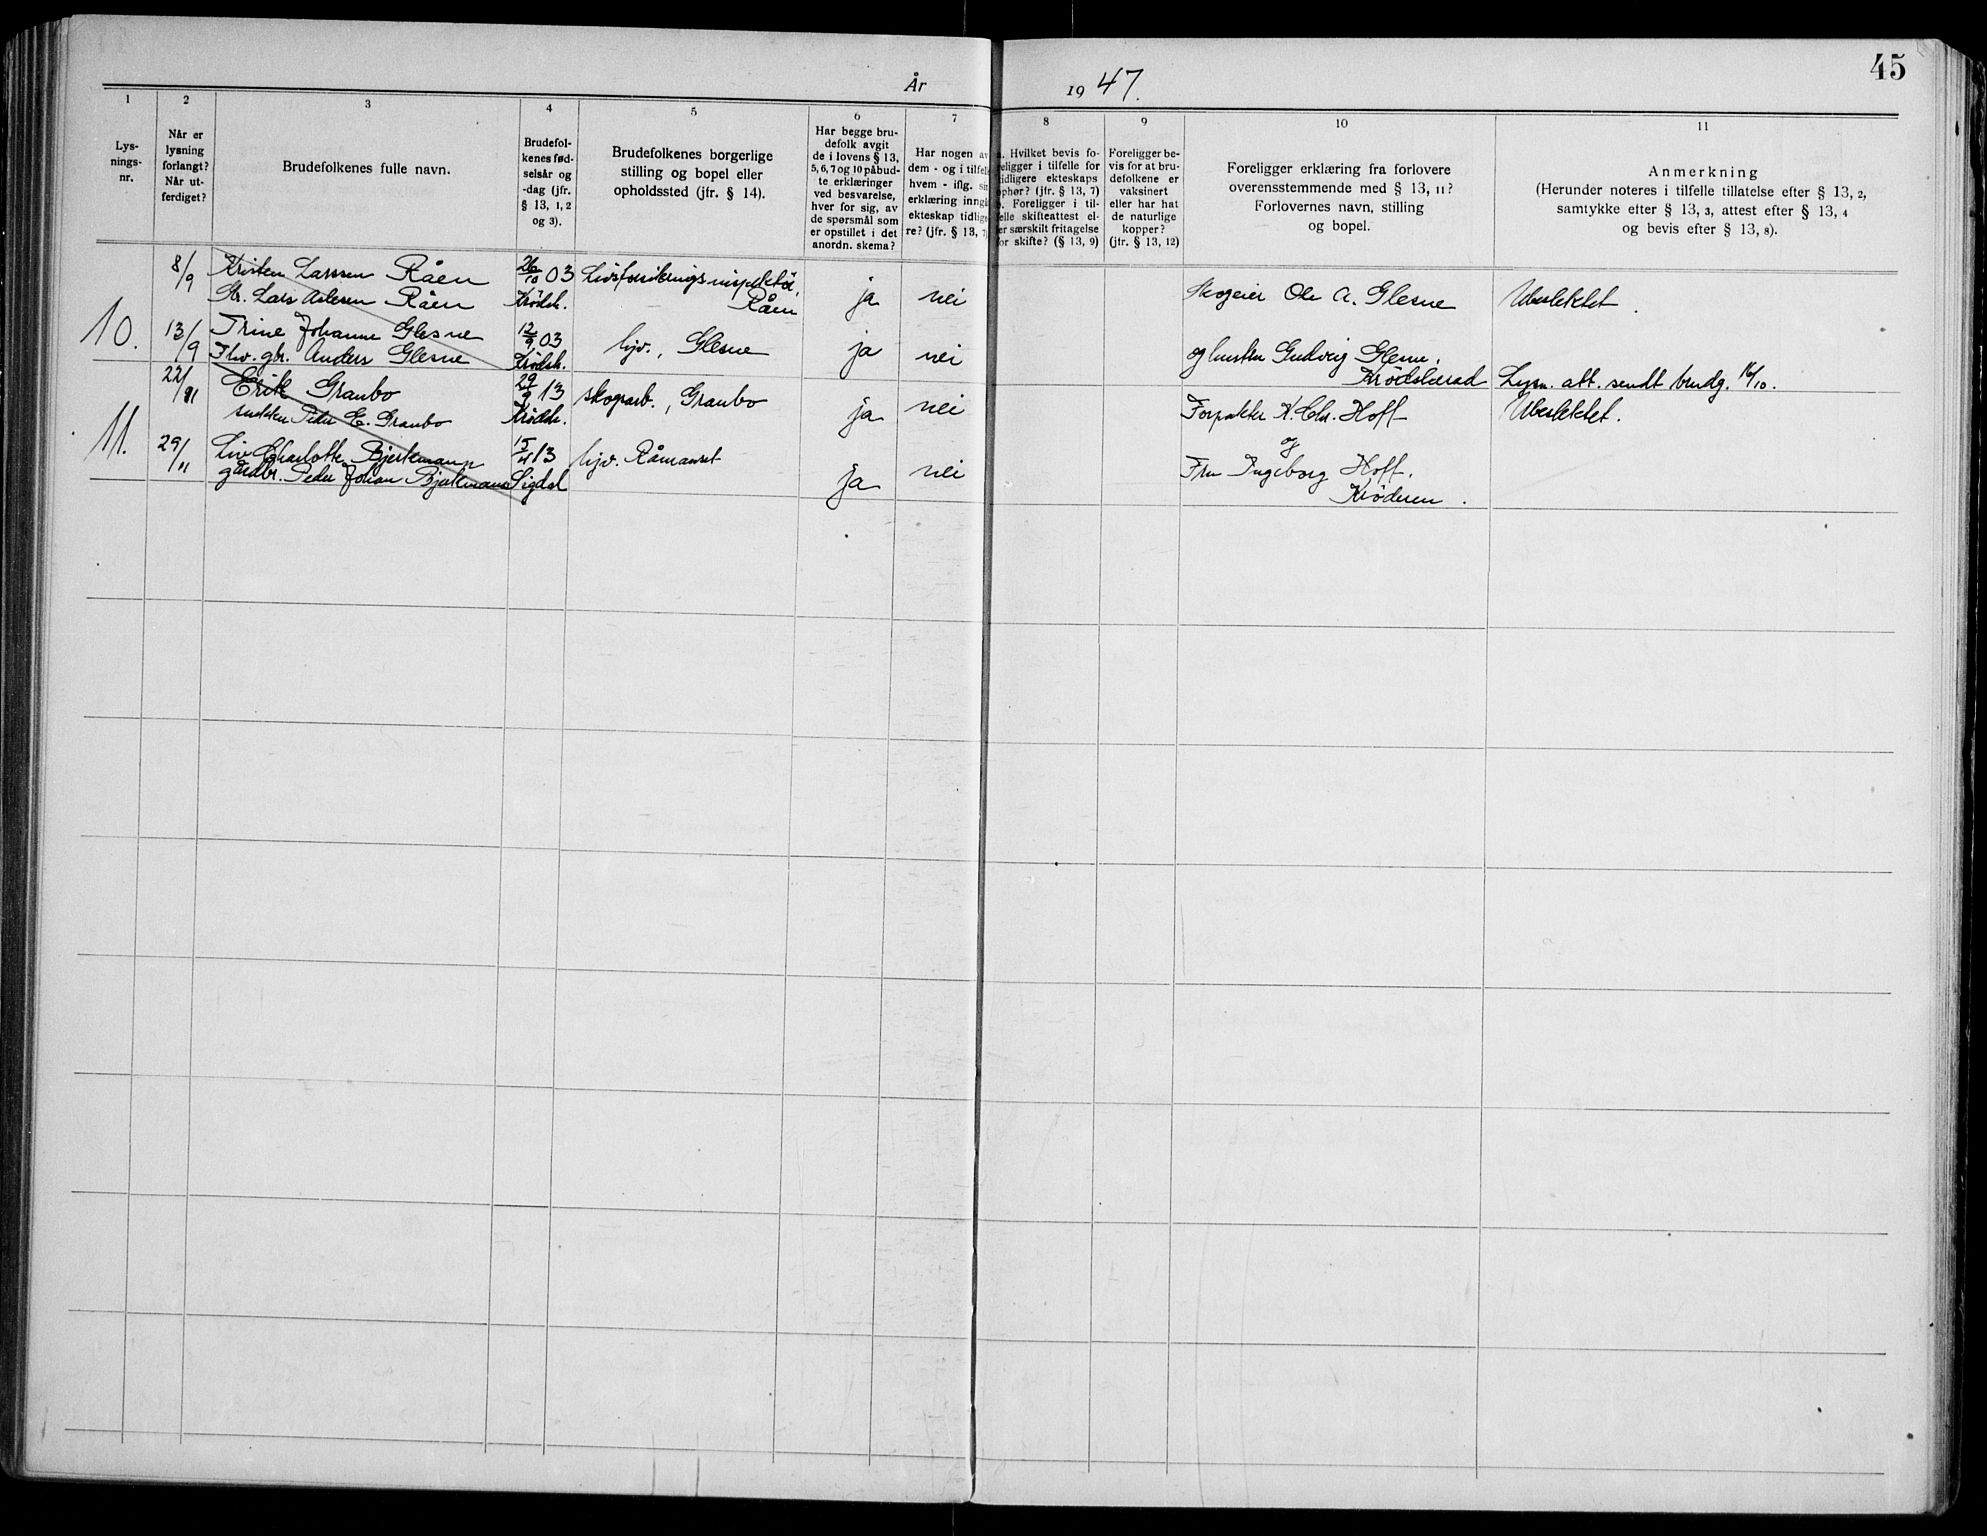 45
År 1947.
1 2 3 4 5 6 7 8 9 10 11
Lys-
nings-
nr.
Når er
lysning
forlangt?
Når ut-
ferdiget?
Brudefolkenes fulle navn.
Brudefol-
kenes fød-
selsår og
-dag (jfr.
§ 13, 1, 2
og 3).
Brudefolkenes borgerlige
stilling og bopel eller
opholdssted (jfr. § 14).
Har begge bru-
defolk avgit
de i lovens § 13,
5, 6, 7 og 10 påbud-
te erklæringer
ved besvarelse,
hver for sig, av
de spørsmål som
er opstillet i det
anordn. skema?
Har nogen av
dem - og i tilfelle
hvem - iflg. sin
erklæring inngå
ekteskap tidlige
re? (jfr. § 13, 7)
a. Hvilket bevis fo-
religger i tilfelle for
tidligere ekteskaps
ophør? (jfr. § 13, 7)
b. Foreligger i til-
felle skifteattest el-
ler særskilt fritagelse
for skifte? (§ 13, 9)
Foreligger be-
vis for at bru-
defolkene er
vaksinert
eller har hat
de naturlige
kopper?
(jfr. § 13, 12)
Foreligger erklæring fra forlovere
overensstemmende med § 13, 11?
Forlovernes navn, stilling
og bopel.
Anmerkning
(Herunder noteres i tilfelle tillatelse efter § 13, 2,
samtykke efter § 13, 3, attest efter § 13, 4
og bevis efter § 13, 8).
10.
8/9
13/9
Kristen Larssen Råen
Gbr. Lars Råen
26/10 03
Krødsh.
Livsforsikringsinspektør,
Råen
ja
nei
Skogeier Ole A. Glesne
Ubeslektet.
Trine Johanne Glesne
Fhv. gbr. Anders Glesne
12/9 03
Krødsh.
hjv., Glesne
ja
nei
og husten Gudveig Glesne,
Krødsherad
Lysn. att. sendt brudg. 16/10.
11.
22/11
29/11
Erik Granbo
Peder E. Granbo
29/9 13
Krødsh.
skogarb., Granbo
ja
nei
Forpakter K. Chr. Hoff
Ubeslektet.
og
Liv Charlotte Bjertemann
gårdbr. Peder Johan Bjertemann
15/4 13
Sigdal
hjv. Råmanset
ja
nei
Fru Ingeborg Hoff.
Krøderen.